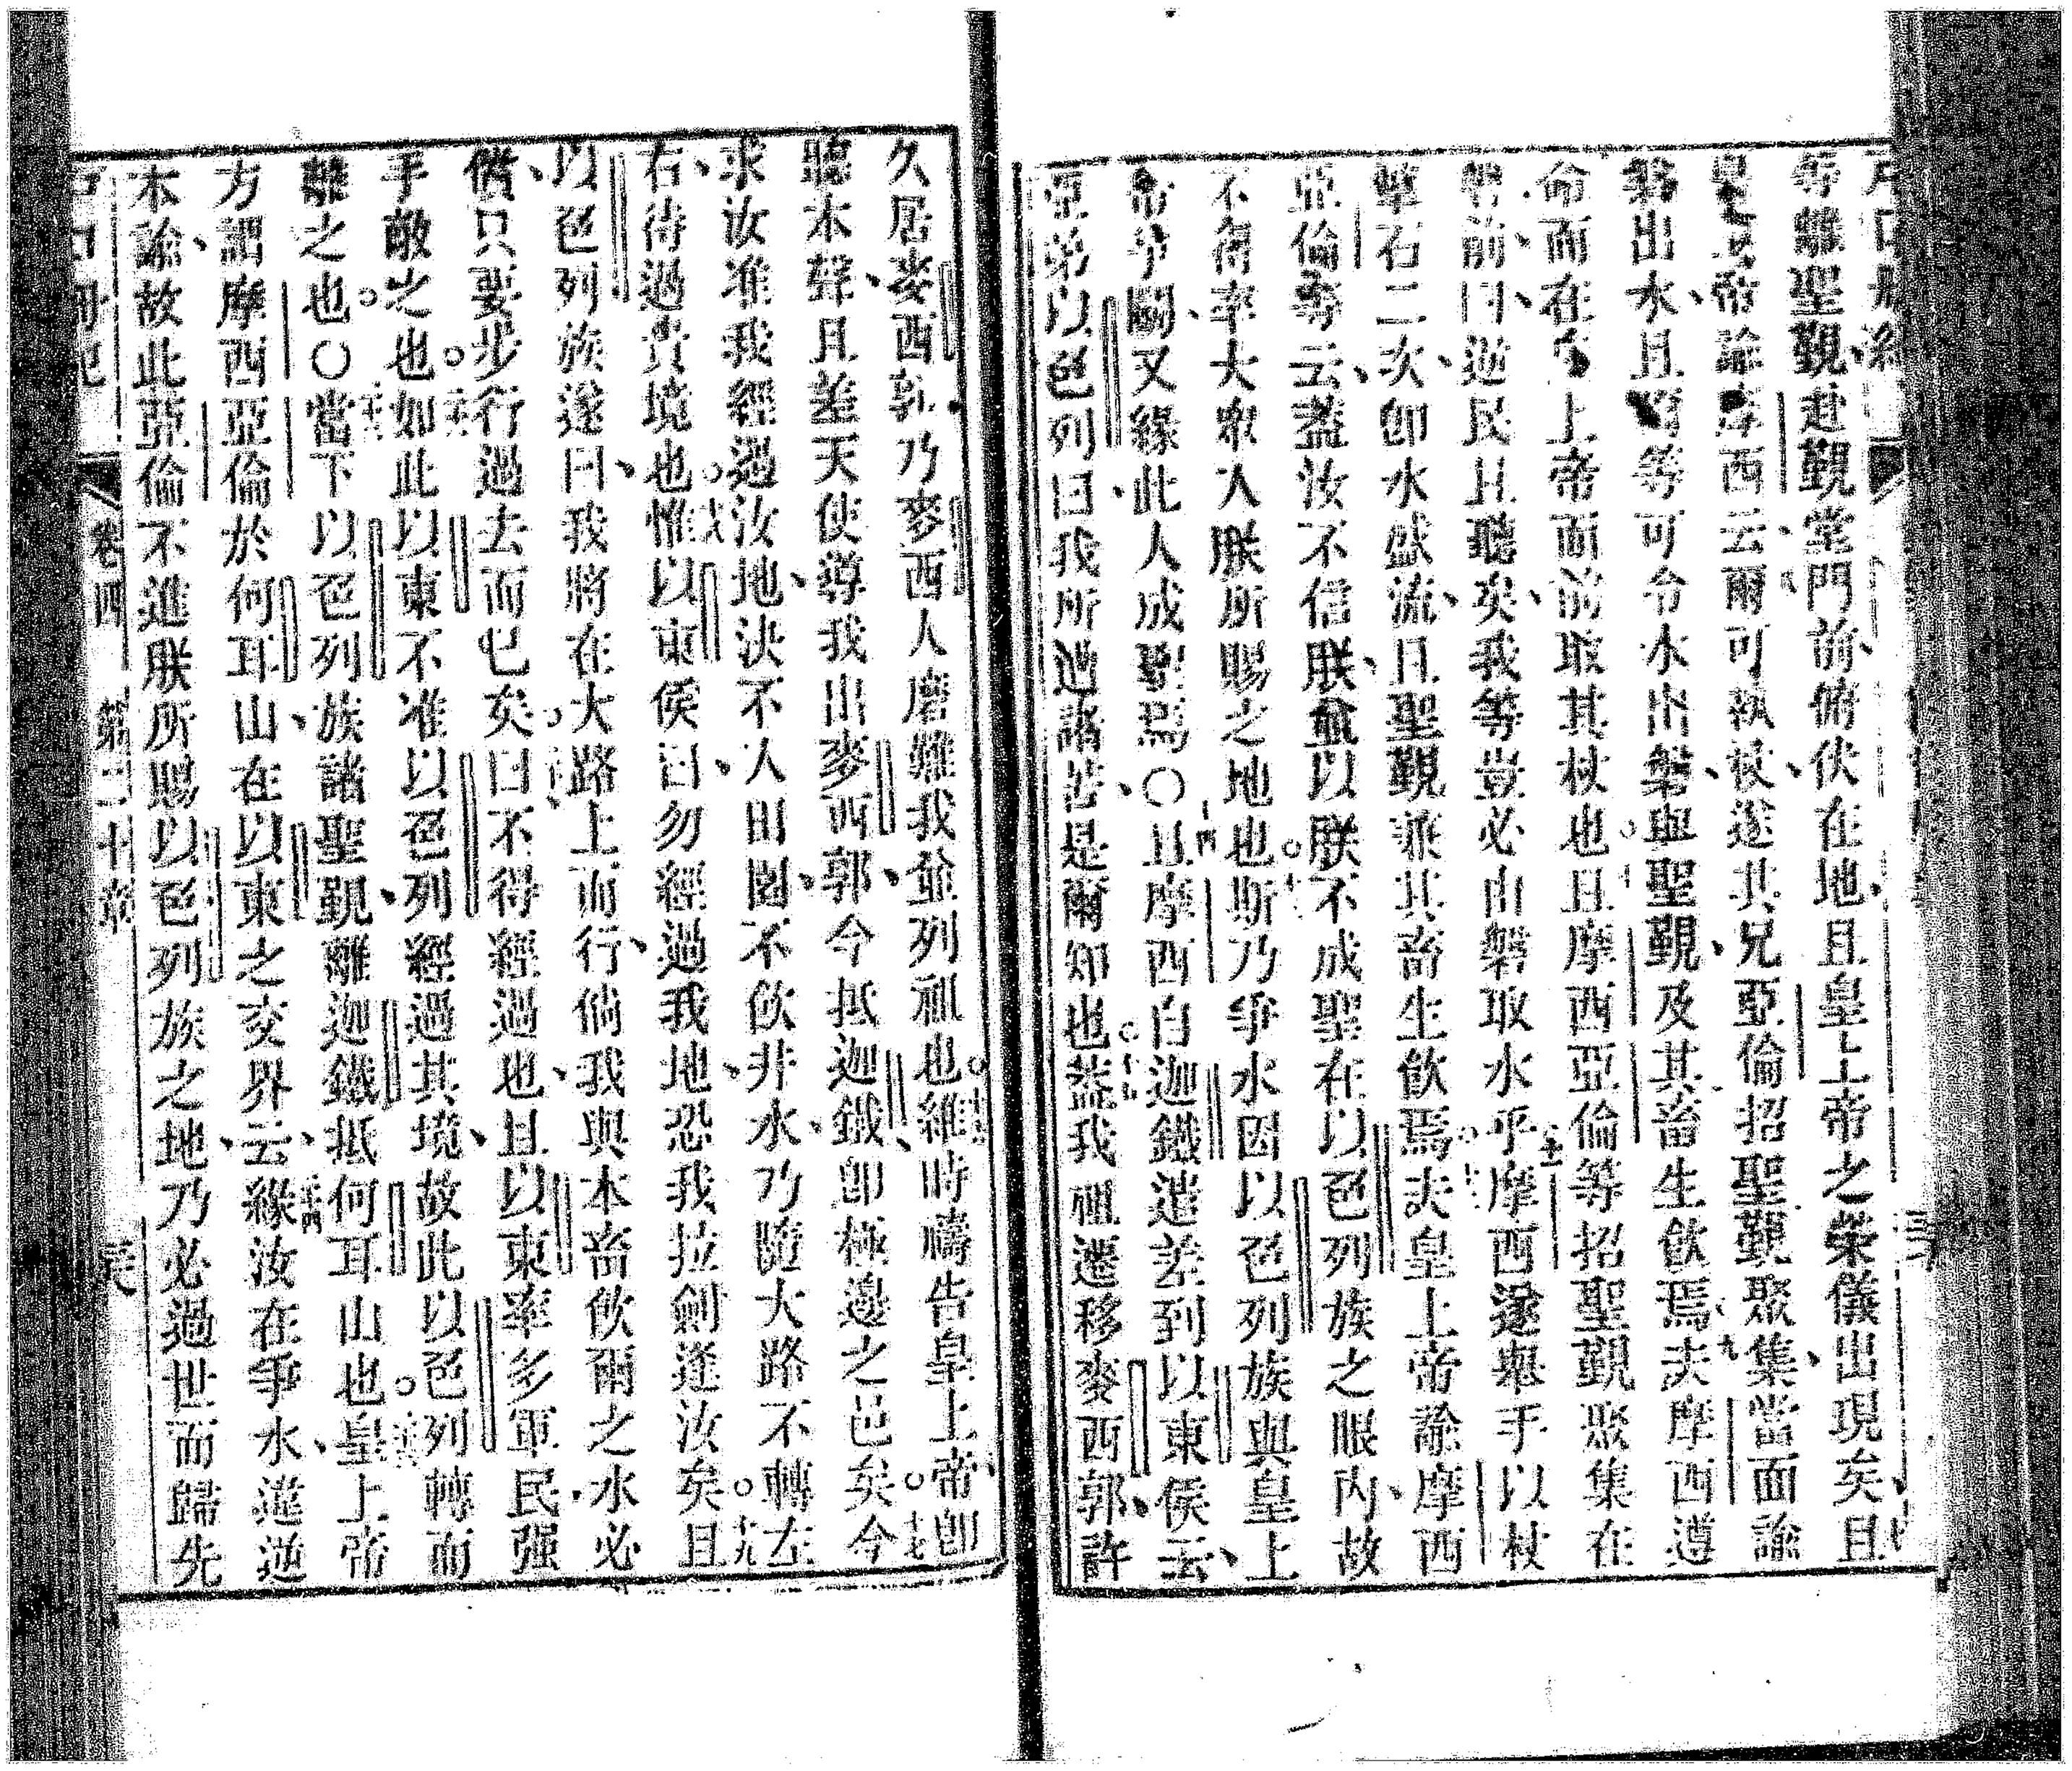 戶口册紀
等離聖覲、赴覲堂門前、俯伏在地、且皇上帝之榮儀出現矣、且
皇上帝諭摩西云、爾可執杖、遂共兄亞倫招聖覲聚集、當面諭
磐出水、且爾等可令水出磐、與聖覲、及其畜生飲焉、九夫摩西遵
命而在皇上帝面前取其杖也。十且摩西亞倫等招聖覲聚集在
磐前、曰、逆民且聽矣、我等豈必由磐取水乎、十一摩西遂舉手以杖
擊石二次、卽水盛流、且聖覲兼其畜生飲焉。十二夫皇上帝諭摩西
亞倫等云、蓋汝不信朕、並以朕不成聖在以色列族之眼內、故
不得率大衆入朕所賜之地也。十三斯乃爭水因以色列族與皇上
帝爭鬬、又緣此人成聖焉〇十四且摩西自迦鐵遣差到以東侯云、
亞弟以色列曰、我所遇諸苦、是爾知也。十五蓋我祖遷移麥西郭、許
久居麥西郭、乃麥西人磨難我並列祖也。十六維時禱告皇上帝、卽
聽本聲、且差天使導我出麥西郭、今抵迦鐵、卽極邊之邑矣。十七今
求汝准我經過汝地、決不入田園、不飲井水、乃隨大路不轉左
右、待過貴境也。十八惟以東侯曰、勿經過我地、恐我拉劍逢汝矣。十九且
以色列族遂曰、我將在大路上而行、倘我與本畜飲爾之水、必
償、只要步行過去而已矣。二十曰、不得經過也、且以東率多軍民、强
手敵之也。二十一如此以東不准以色列經過其境、故此以色列轉而
離之也。〇二十二當下以色列族諸聖覲、離迦鐵抵何耳山也。二十三皇上帝
方謂摩西亞倫於何耳山、在以東之交界云、二十四緣汝在爭水、違逆
本諭、故此亞倫不進朕所賜以色列族之地、乃必過世而歸先
戶口册紀 卷四 第二十章